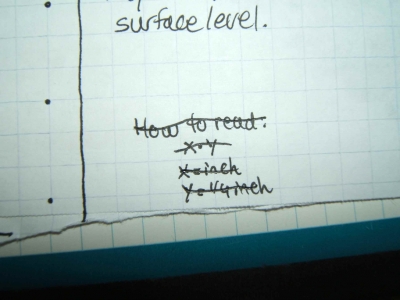 surface level.
How to read:
X.Y
X=inch
Y=1/4 inch